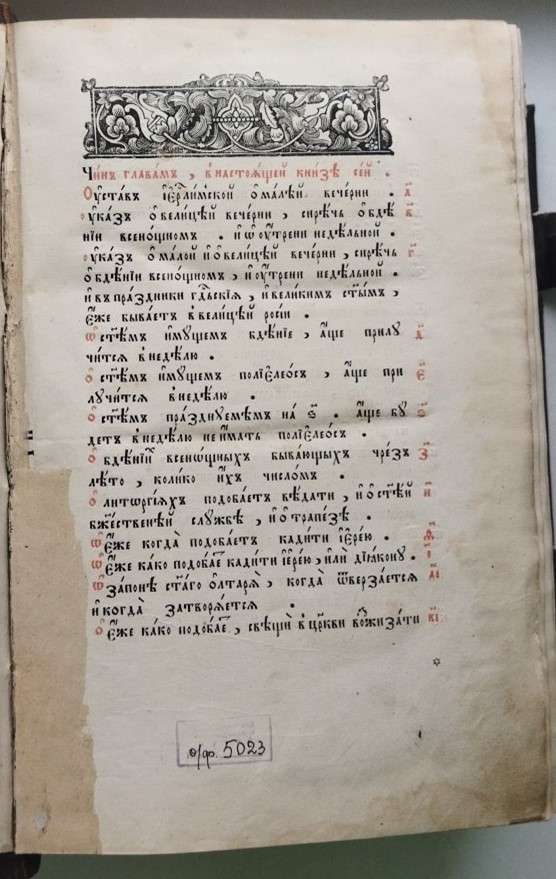 Чи́нъ глава́мъ , в̾настоѧ́щей кни́зѣ се́й .
Оу҆ста́въ і҆ерл҃и́мской ѡ҆ма́лѣй вече́рни . а҃
оу҆ка́зъ ѡ҆вели́цѣй вече́рни , си́рѣчь ѡ҆бдѣ в҃
нїи всено́щномъ . и҆ѡ҆оу҆́трени недѣ́льной .
оу҆ка́зъ ѡ҆ма́лой и҆ѡ҆вели́цѣй вече́рни , си́рѣчь г҃
ѡ҆бдѣ́нїи всено́щномъ , и҆оу҆́трени недѣ́льной .
и҆въ пра́здники гд҇ьскїѧ , и҆вели́кимъ ст҃ы́мъ ,
є҆́же быва́етъ в̾вели́цѣй росі́и .
ѡ҆ст҃ѣ́мъ и҆му́щемъ бдѣ́нїе , а҆́ще прилу д҃
чи́тсѧ в̾недѣ́лю .
ѡ҆ст҃ѣ́мъ и҆му́щемъ полїеле́ѻсъ , а҆́ще при є҃
лучи́тсѧ в̾недѣ́лю .
ѡ҆ст҃ѣ́мъ пра́зднуемѣмъ на ѕ҃ . а҆́ще бу ѕ҃
детъ в̾недѣ́лю неи҆́мать полїеле́ѻсъ .
ѡ҆бдѣ́нїи всено́щныхъ быва́ющыхъ чре́зъ з҃
лѣ́то , коли́ко и҆́хъ число́мъ .
ѡ҆литоргі́ѧхъ подоба́етъ вѣ́дати , и҆ѡ҆ст҃ѣ́й и҃
бж҃е́ственѣй слу́жбѣ , и҆ѡ҆трапе́зѣ .
ѡ҆є҆́же когда̀ подоба́етъ кади́ти і҆ере́ю . ѳ҃
ѡ҆є҆́же ка́ко подоба́етъ кади́ти і҆ере́ю , и҆лѝ дїа́кону . і҃
ѡ҆запо́нѣ ст҃а́го ѻ҆лтарѧ̀ , когда̀ ѿверза́етсѧ а҃і
и҆когда̀ затворѧ́етсѧ .
ѡ҆є҆́же ка́ко подоба́етъ , свѣщы̀ в̾цр҃кви вожиза́ти в҃і
о/ф. 5023